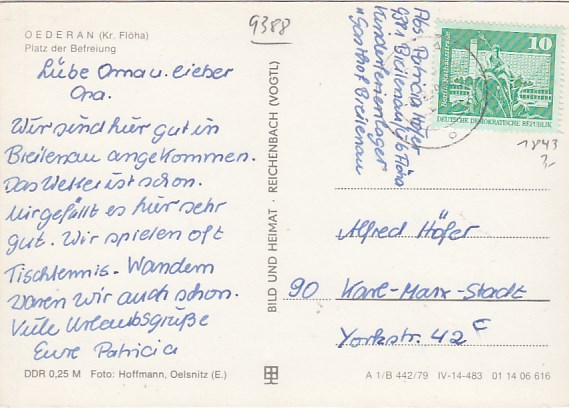 OEDERAN (Kr. Flöha)
Platz der Befreiung
9388
Liebe Oma u. lieber
Opa.
Wir sind hier gut in
Breitenau angekommen.
Das Wetter ist schön.
Mir gefällt es hier sehr
gut. Wir spielen oft
Tischtennis. Wandern
waren wir auch schon.
Viele Urlaubsgrüße
Eure Patricia
DDR 0,25 M Foto: Hoffmann, Oelsnitz (E.)
BILD UND HEIMAT · REICHENBACH (VOGTL)
Abs. Patricia Höfer
9381 Breitenau üb Flöha
Kinderferienlager
"Gasthof Breitenau
10
Berlin, Rathausstraße
DEUTSCHE DEMOKRATISCHE REPUBLIK
1843
3,-
Alfred Höfer
90 Karl-Marx-Stadt
Yorkstr. 42 F
A 1/B 442/79 IV-14-483 01 14 06 616